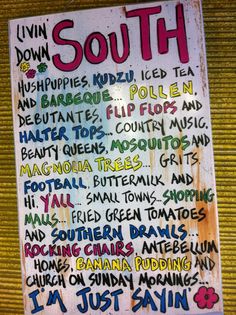 LIVIN'
DOWN SOUTH
HUSHPUPPIES, KUDZU, ICED TEA
AND BARBEQUE... POLLEN,
DEBUTANTES, FLIP FLOPS AND
HALTER TOPS... COUNTRY MUSIC,
BEAUTY QUEENS, MOSQUITOS AND
MAGNOLIA TREES... GRITS,
FOOTBALL, BUTTERMILK, AND
HI, Y'ALL... SMALL TOWNS... SHOPPING
MALLS... FRIED GREEN TOMATOES
AND SOUTHERN DRAWLS...
ROCKING CHAIRS, ANTEBELLUM
HOMES, BANANA PUDDING AND
CHURCH ON SUNDAY MORNINGS...
I'M JUST SAYIN'